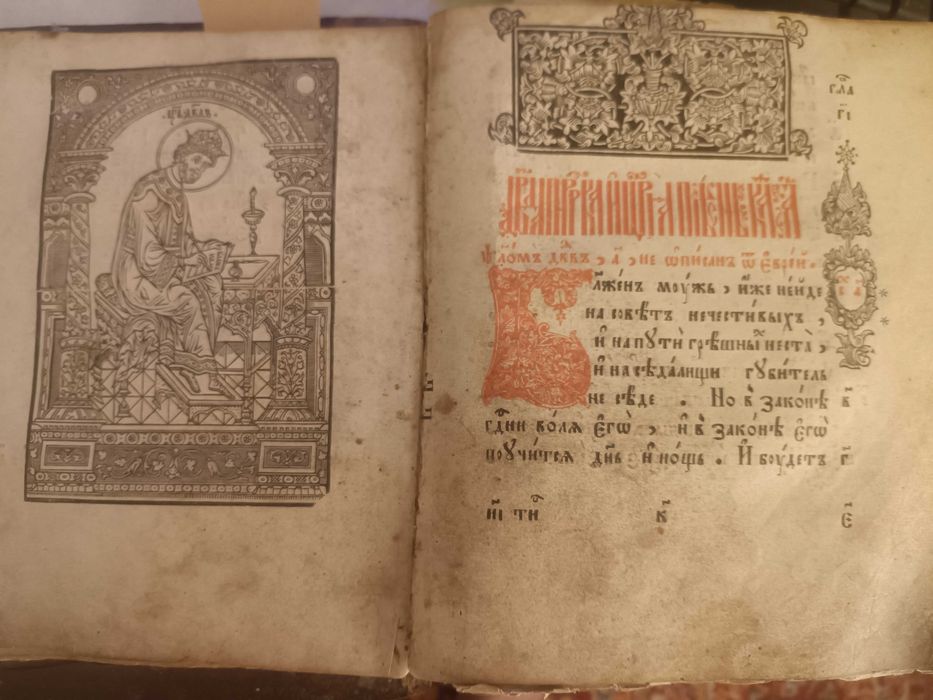 гл҃а
г҃і
ѱало́мъ дв҃дъ , а҃ , не ѡписан ѿ еврей .
Блжен моужъ , и҆же не и҆де
на совѣтъ нечестивыхъ ,
и҆ на пути грѣшны не ста ,
и҆ на сѣдалищи губитель
не сѣде . Но в законѣ в҃
гд҃ни воля е҆гѡ̀ , и҆ в законѣ е҆гѡ̀
поучится дн҃ь и҆ нощь . И҆ боудетъ г҃
в҃ е҃